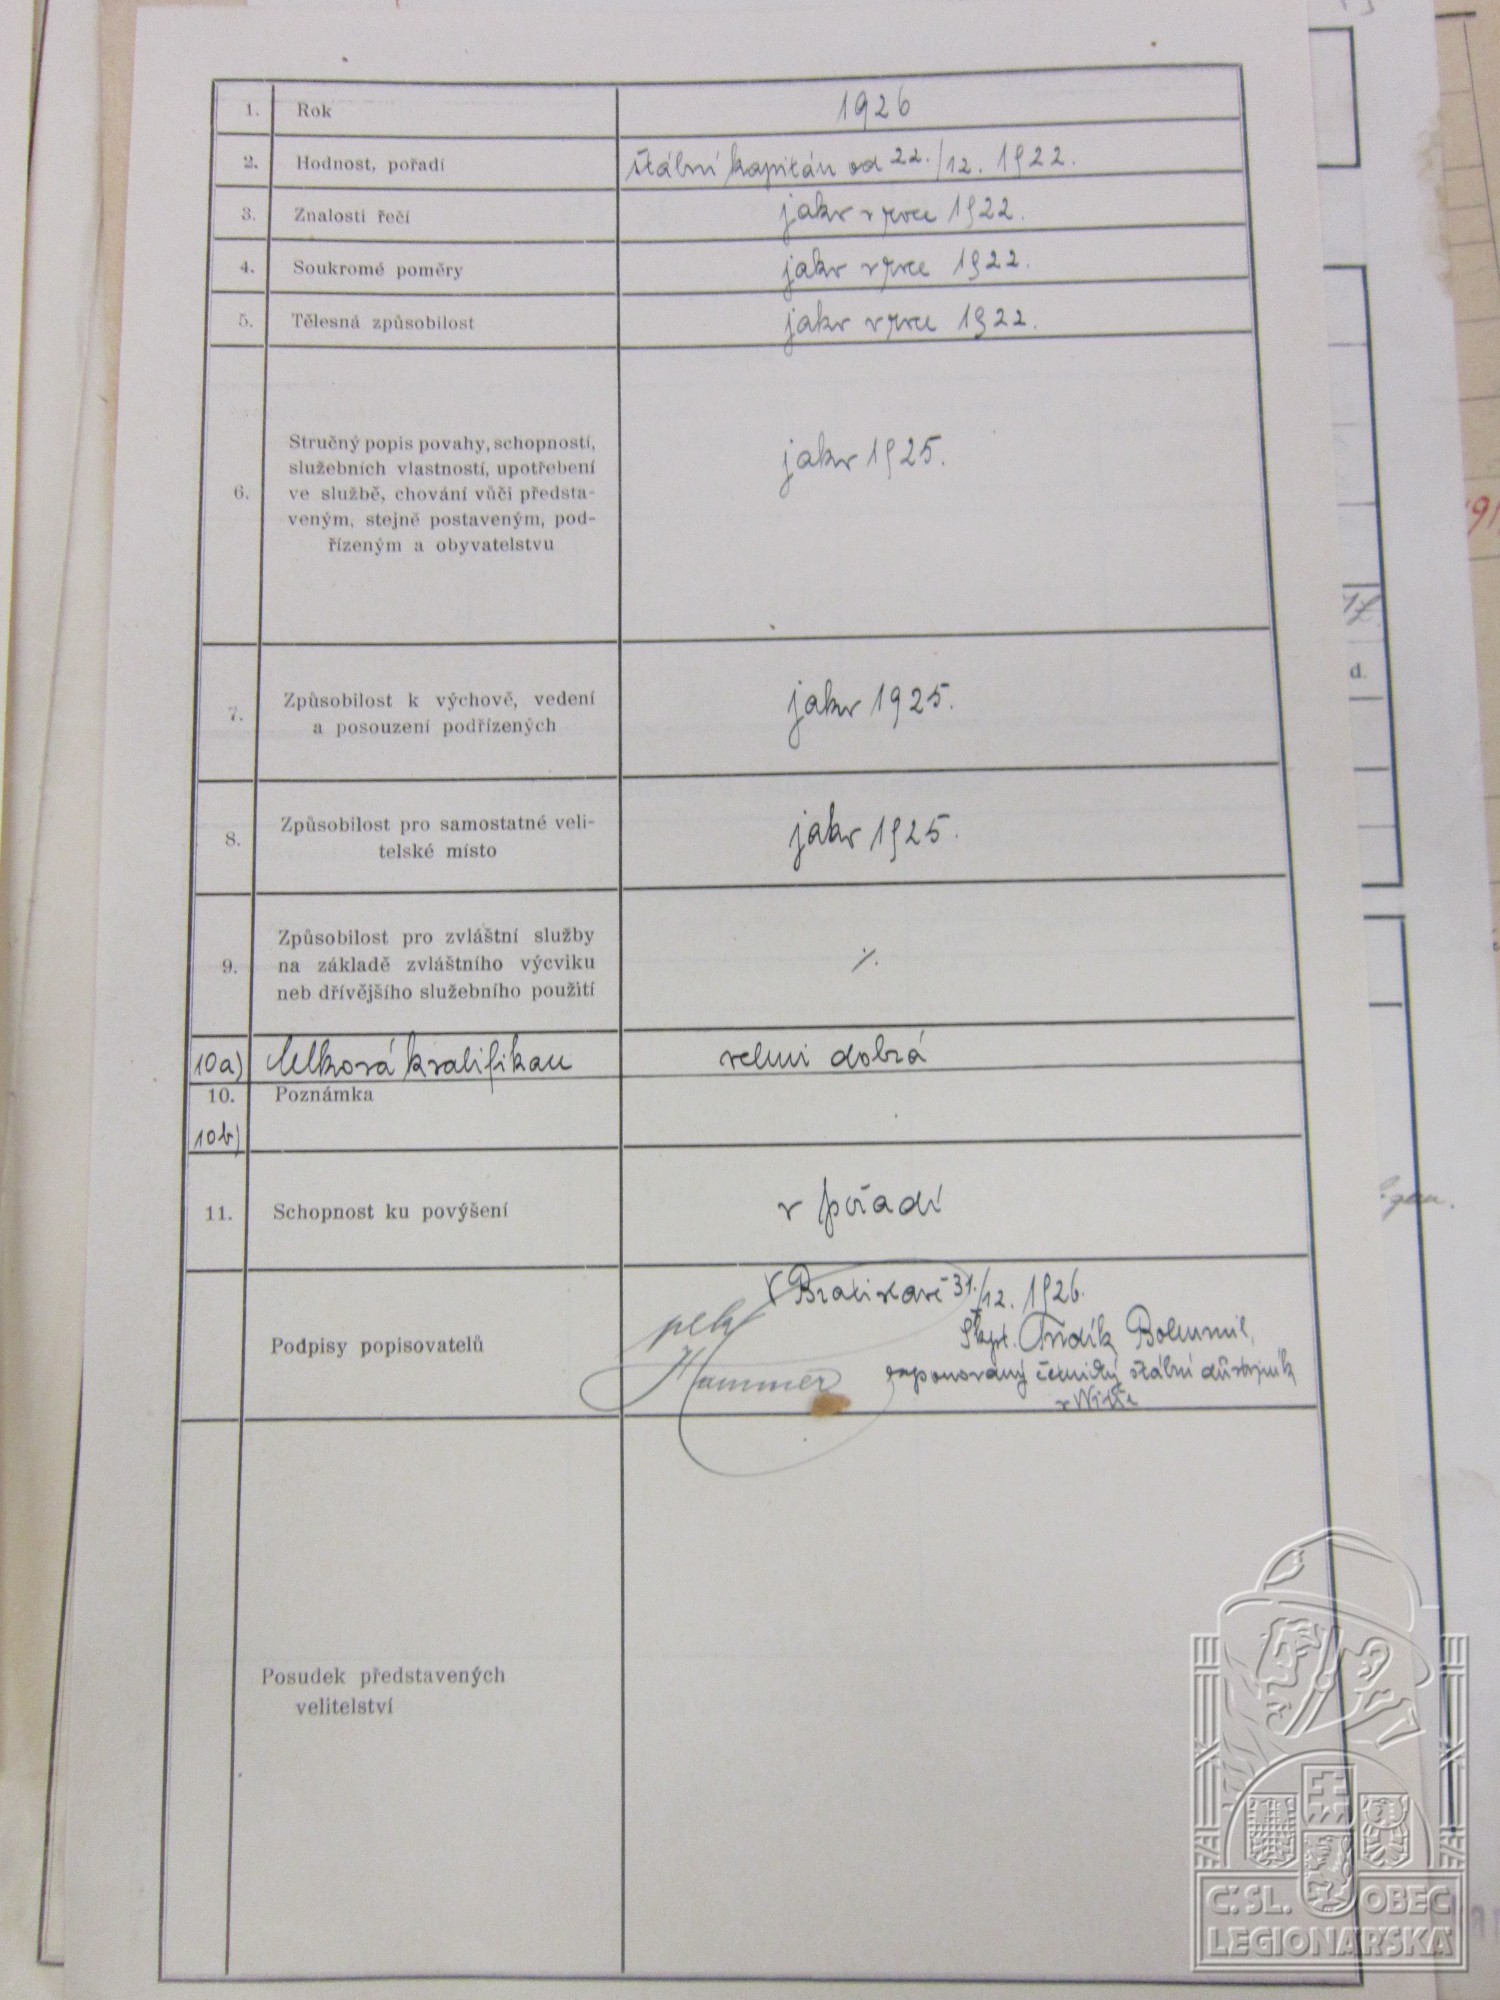 1. Rok 1926
2. Hodnost, pořadí štábní kapitán od 22./12. 1922.
3. Znalosti řečí jako v roce 1922.
4. Soukromé poměry jako v roce 1922.
5. Tělesná způsobilost jako v roce 1922.
Stručný popis povahy, schopností,
služebních vlastností, upotřebení
6. ve službě, chování vůči předsta-
veným, stejně postaveným, pod-
řízeným a obyvatelstvu
jako 1925.
Způsobilost k výchově, vedení
7. a posouzení podřízených
jako 1925.
Způsobilost pro samostatné veli-
8. telské místo
jako 1925.
Způsobilost pro zvláštní služby
9. na základě zvláštního výcviku
neb dřívějšího služebního použití
./.
10a) Celková kvalifikace velmi dobrá
10. Poznámka
10b)
11. Schopnost ku povýšení v pořadí
V Bratislavě 31./12. 1926.
Podpisy popisovatelů
Škpt. Bohumil,
Hammer
exponovaný četnický štábní důstojník
v
Posudek představených
velitelství
Č.SL. OBEC
LEGIONÁŘSKÁ
d.